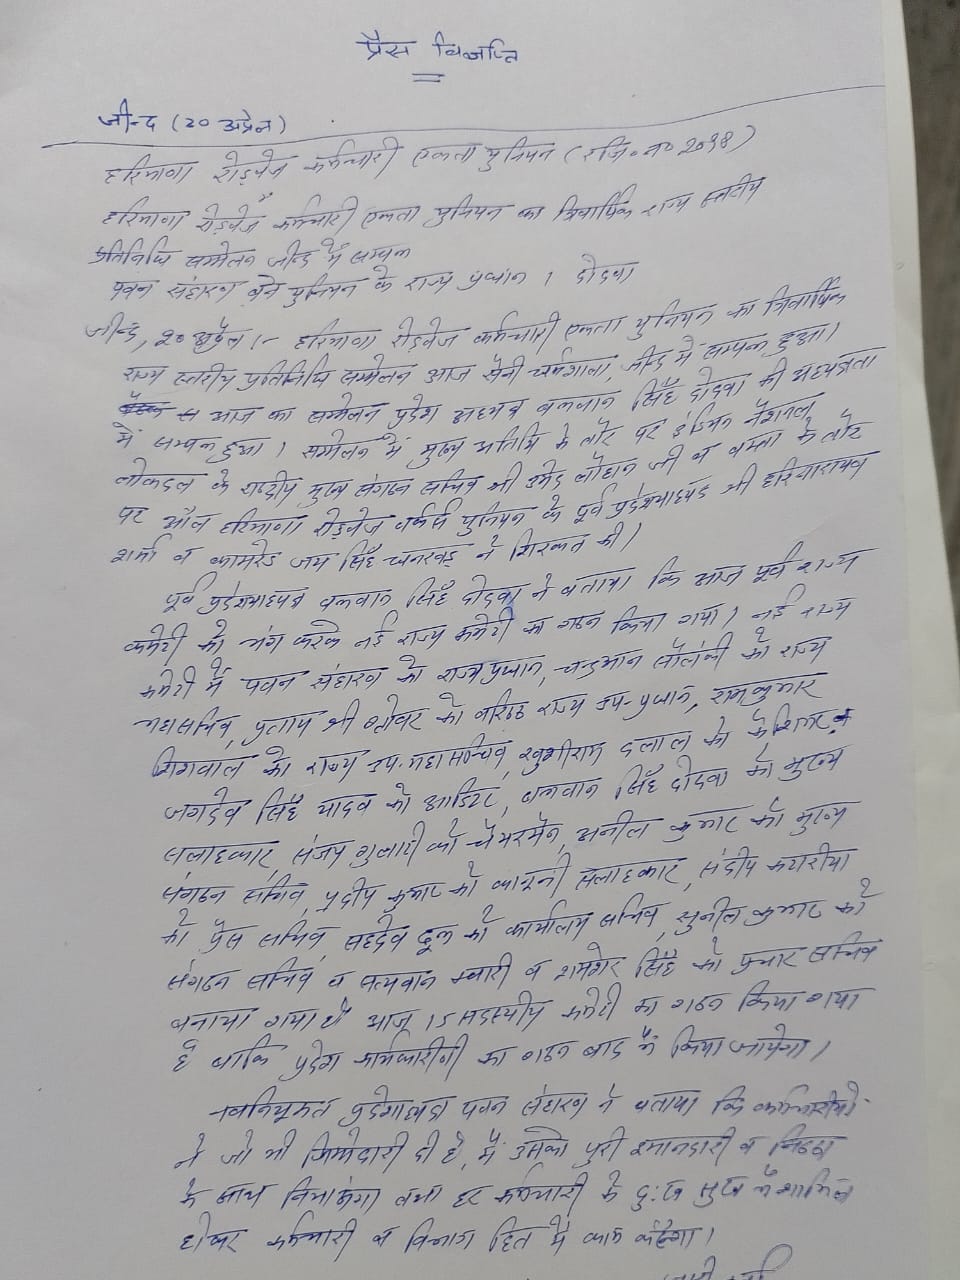 प्रैस विज्ञप्ति
जीन्द (20 अप्रैल)
हरियाणा रोड़वेज कर्मचारी एकता यूनियन (रजि० न०
हरियाणा रोड़वेज कर्मचारी एकता यूनियन का त्रिवार्षिक राज्य स्तरीय
प्रतिनिधि सम्मेलन जीन्द में सम्पन्न
पवन संहारण बने यूनियन के राज्य प्रधान । दोदवा
जीन्द, 20 अप्रैल :- हरियाणा रोड़वेज कर्मचारी एकता यूनियन का त्रिवार्षिक
राज्य स्तरीय प्रतिनिधि सम्मेलन आज सैनी धर्मशाला, जीन्द में सम्पन्न हुआ।
आज का सम्मेलन प्रदेश अध्यक्ष बलवान सिंह दोदवा की अध्यक्षता
में सम्पन्न हुआ। सम्मेलन में मुख्य अतिथि के तौर पर इंडियन नैशनल
लोकदल के राष्ट्रीय मुख्य संगठन सचिव श्री उमेद लौहान जी व वक्ता के तौर
पर ऑल हरियाणा रोड़वेज वर्कर्स यूनियन के पूर्व प्रदेशाध्यक्ष श्री हरिनारायण
शर्मा व कामरेड जय सिंह ने शिरकत की।
पूर्व प्रदेशाध्यक्ष बलवान सिंह दोदवा ने बताया कि आज पूर्व राज्य
कमेटी को भंग करके नई राज्य कमेटी का गठन किया गया। नई राज्य
कमेटी में पवन संहारण को राज्य प्रधान, चन्द्रभान सोलंकी को राज्य
महासचिव, प्रताप श्री को वरिष्ठ राज्य उप-प्रधान, रामकुमार
को राज्य उप-महासचिव, खुशीराम दलाल को कैशियर व
जगदेव सिंह यादव को आडिटर, बलवान सिंह दोदवा को मुख्य
सलाहकार, संजय गुलाटी को चैयरमैन, अनील कुमार को मुख्य
संगठन सचिव, प्रदीप कुमार को कानूनी सलाहकार, संदीप
को प्रैस सचिव, सहदेव को कार्यालय सचिव, सुनील कुमार को
संगठन सचिव व सत्यवान व शमशेर सिंह को प्रचार सचिव
बनाया गया है आज 15 सदस्यीय कमेटी का गठन किया गया
है बाकि प्रदेश कार्यकारीणी का गठन बाद में किया जायेगा।
नवनियुक्त प्रदेशाध्यक्ष पवन संहारण ने बताया कि कर्मचारीयों
ने जो भी जिमेदारी दी है, मैं उसको पूरी इमानदारी व निष्ठा
के साथ निभाऊंगा तथा हर कर्मचारी के दु:ख सुख में शामिल
होकर कर्मचारी व विभाग हित में काम करूंगा।